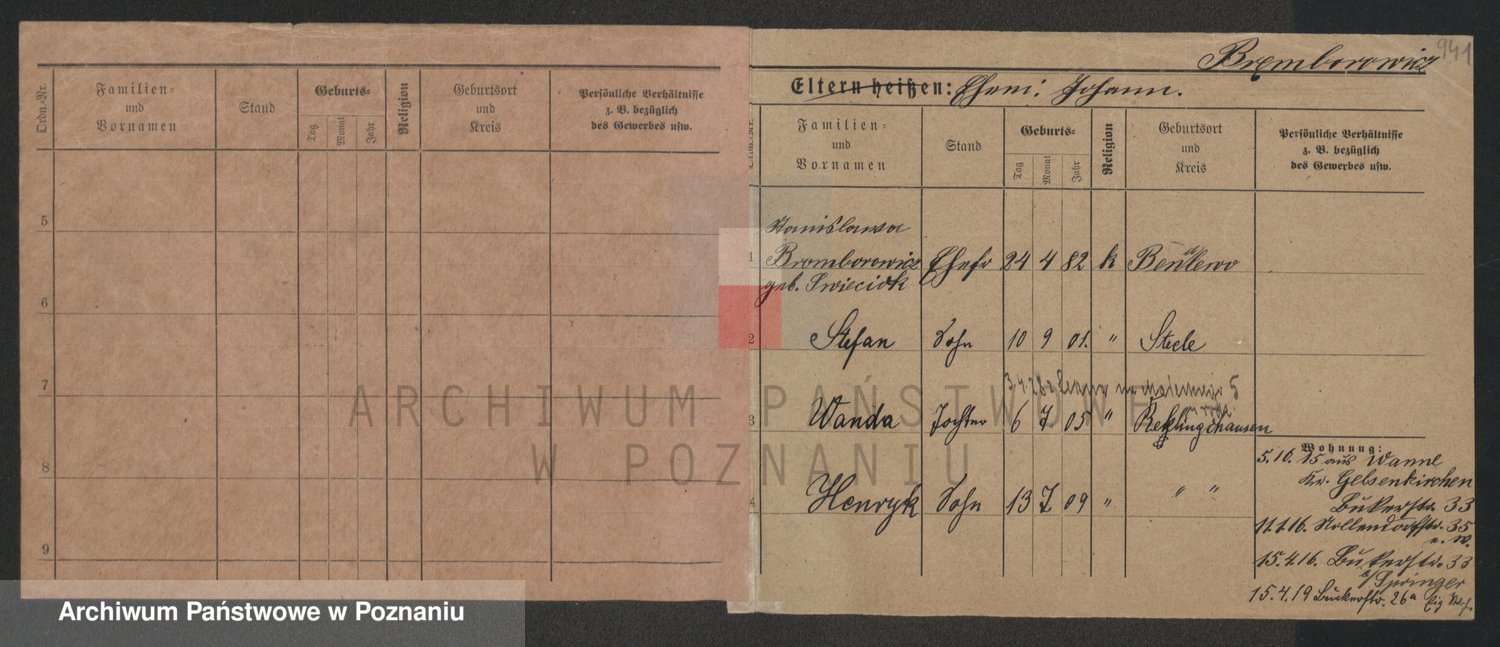 Ordn.-Nr.
Familien-
und
Vornamen
Stand
Geburts-
Tag
Monat
Jahr
Religion
Geburtsort
und
Kreis
Persönliche Verhältnisse
z. B. bezüglich
des Gewerbes usw.
5
6
7
8
9
941
Bremborowicz
Eltern heißen: Ehem: Johann.
Ordn.-Nr.
Familien-
und
Vornamen
Stand
Geburts-
Tag
Monat
Jahr
Religion
Geburtsort
und
Kreis
Persönliche Verhältnisse
z. B. bezüglich
des Gewerbes usw.
Stanislawa
1 Bromborowicz Ehefr 24 4 82 k
geb.
2 Stefan Sohn 10 9 01. " Steele
5
3 Wanda Tochter 6 7 05 " Reklingshausen
4 Henryk Sohn 13 7 09 " " "
Wohnung:
5.10.15 aus Wanne
Kr. Gelsenkirchen
Bukerstr. 33
11.1.16. Nollendorfstr. 35
e. W.
15.4.16. Bukerstr. 33
b/ Springer
15.4.19 Buckerstr. 26a
ARCHIWUM PAŃSTWOWE
W POZNANIU
Archiwum Państwowe w Poznaniu